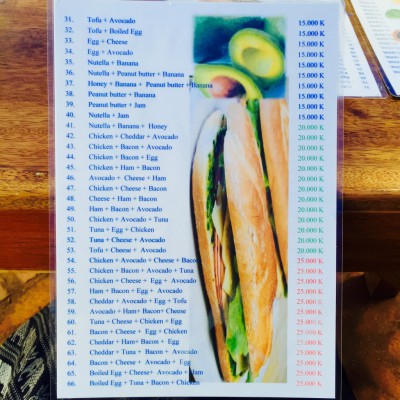 31. Tofu + Avocado 15.000 K
32. Tofu + Boiled Egg 15.000 K
33. Egg + Cheese 15.000 K
34. Egg + Avocado 15.000 K
35. Nutella + Banana 15.000 K
36. Nutella + Peanut butter + Banana 15.000 K
37. Honey + Banana + Peanut butter + Banana 15.000 K
38. Peanut butter + Banana 15.000 K
39. Peanut butter + Jam 15.000 K
40. Nutella + Jam 15.000 K
41. Nutella + Banana + Honey 20.000 K
42. Chicken + Cheddar + Avocado 20.000 K
43. Chicken + Bacon + Avocado 20.000 K
44. Chicken + Bacon + Egg 20.000 K
45. Chicken + Ham + Bacon 20.000 K
46. Avocado + Cheese + Ham 20.000 K
47. Chicken + Cheese + Bacon 20.000 K
48. Cheese + Ham + Bacon 20.000 K
49. Ham + Bacon + Avocado 20.000 K
50. Chicken + Avocado + Tuna 20.000 K
51. Tuna + Egg + Chicken 20.000 K
52. Tuna + Cheese + Avocado 20.000 K
53. Tofu + Cheese + Avocado 20.000 K
54. Chicken + Avocado + Cheese + Bacon 25.000 K
55. Chicken + Bacon + Avocado + Tuna 25.000 K
56. Chicken + Cheese + Egg + Avocado 25.000 K
57. Ham + Bacon + Egg + Avocado 25.000 K
58. Cheddar + Avocado + Egg + Tofu 25.000 K
59. Avocado + Ham+ Bacon+ Cheese 25.000 K
60. Tuna + Cheese + Chicken + Egg 25.000 K
61. Bacon + Cheese + Egg + Chicken 25.000 K
62. Cheddar + Ham+ Bacon + Egg 25.000 K
63. Cheddar + Tuna + Bacon + Avocado 25.000 K
64. Bacon + Cheese + Avocado + Egg 25.000 K
65. Boiled Egg + Cheese+ Avocado + Ham 25.000 K
66. Boiled Egg + Tuna + Bacon + Chicken 25.000 K